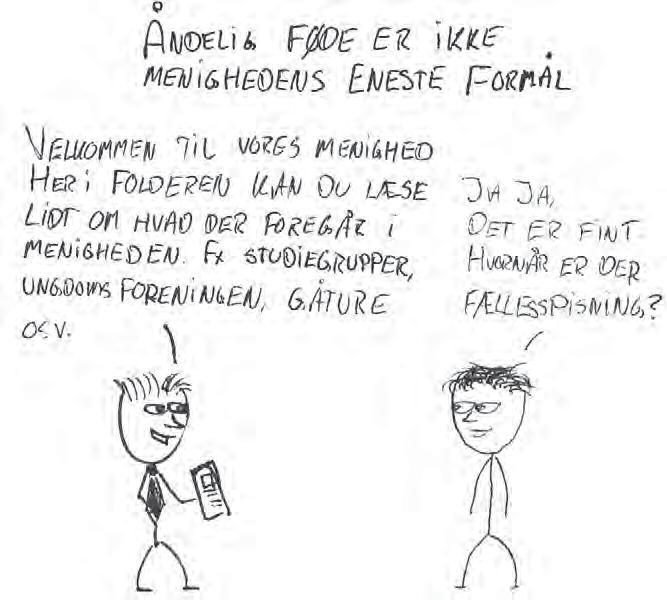 ÅNDELIG FØDE ER IKKE
MENIGHEDENS ENESTE FORMÅL
VELKOMMEN TIL VORES MENIGHED
HER I FOLDEREN KAN DU LÆSE
LIDT OM HVAD DER FOREGÅR I
MENIGHEDEN. FX STUDIEGRUPPER,
UNGDOMS FORENINGEN, GÅTURE
OSV.
JA JA,
DET ER FINT.
HVORNÅR ER DER
FÆLLESSPISNING?